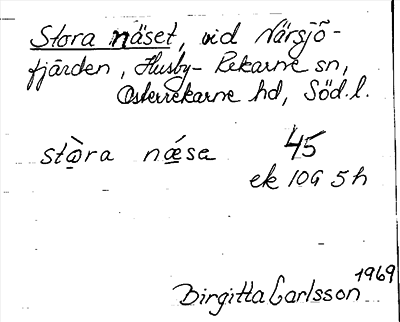 Stora näset, vid Närsjö-
fjärden, Husby-Rekarne sn,
Österrekarne hd, Söd. l.
stòra næse 45
ek 10G 5h
Birgitta Carlsson 1969